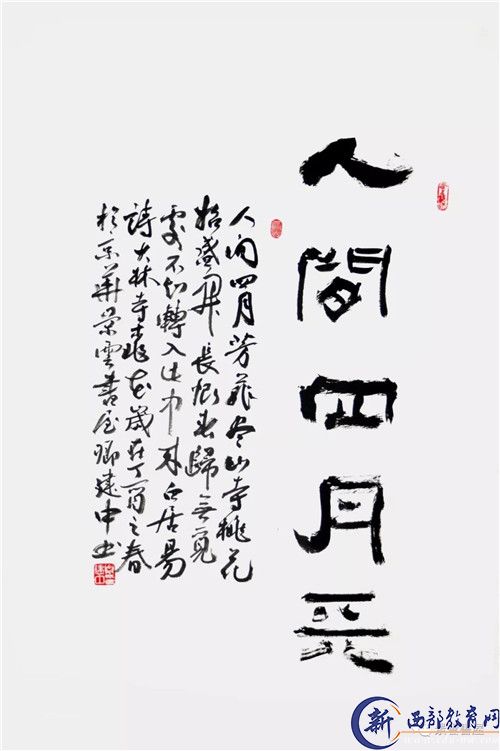 人間四月天
人间四月芳菲尽山寺桃花
始盛開長恨春歸無覓
處不知轉入此中来白居易
詩大林寺桃花歲在丁酉之春
於京華景雲書屋卿建中书
新西部教育网